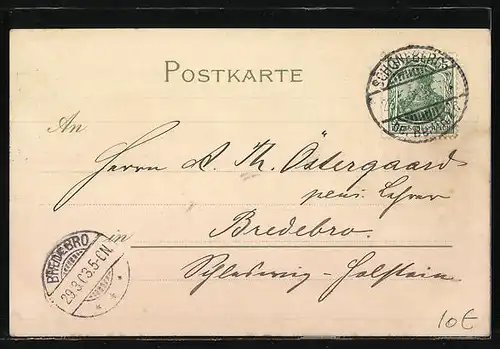 POSTKARTE
SCHÖNEBERG
b. BERLIN
An
Herrn A. Th. Östergaard
pens. Lehrer
in Bredebro.
Schleswig-Holstein
BREDEBRO
29.3.03.5-6N.
10€